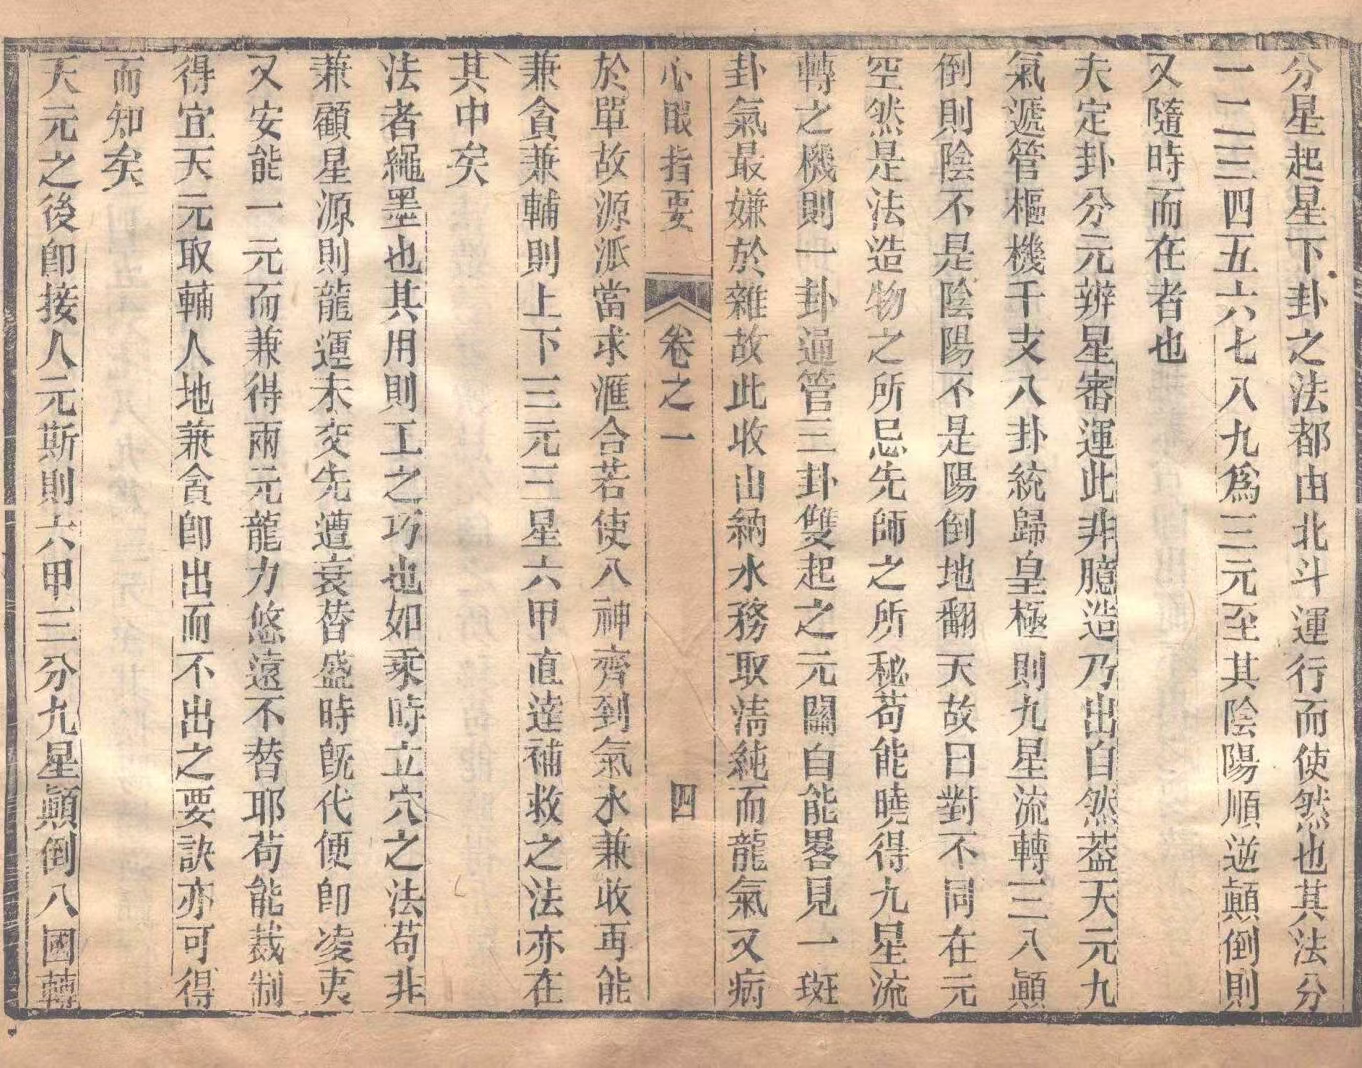 分星起星下卦之法都由北斗運行而使然也其法分
一二三四五六七八九爲三元至其陰陽順逆顛倒則
又隨時而在者也
夫定卦分元辨星審運此非臆造乃出自然葢天元九
氣遞管樞機干支八卦統歸皇極則九星流轉三八顚
倒則陰不是陰陽不是陽倒地翻天故曰對不同在元
空然是法造物之所忌先師之所秘苟能曉得九星流
轉之機則一卦通管三卦雙起之元關自能畧見一斑
卦氣最嫌於雜故此收山納水務取清純而龍氣又病
心眼指要 卷之一 四
於單故源派當求滙合若使八神齊到氣水兼收再能
兼貪兼輔則上下三元三星六甲直達補救之法亦在
其中矣
法者繩墨也其用則工之巧也如乘時立穴之法苟非
兼顧星源則龍運未交先遭衰替盛時旣代便卽凌夷
又安能一元而兼得兩元龍力悠遠不替耶苟能裁制
得宜天元取輔人地兼貪卽出而不出之要訣亦可得
而知矣
天元之後卽接人元斯則六甲三分九星顚倒八國轉